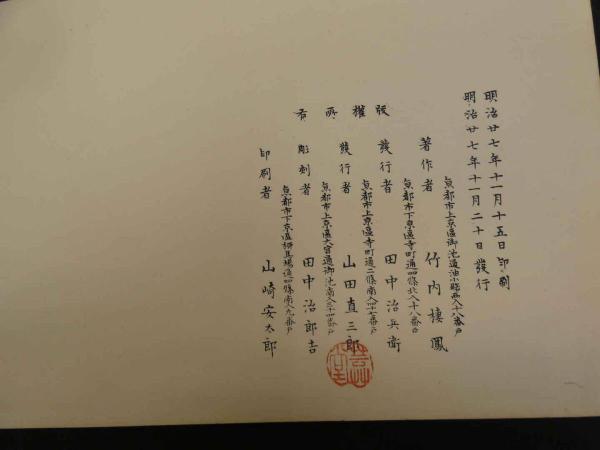 明治廿七年十一月十五日印刷
明治廿七年十一月二十日發行
版權所有
京都市上京區御池通油小路西入十八番戸
著作者 竹内棲鳳
京都市下京區寺町通四條北入十八番戸
發行者 田中治兵衛
京都市上京區寺町通二條南入廿七番戸
發行者 山田直三郎
京都市上京區大宮通御池南入三十四番戸
彫刻者 田中治郎吉
京都市下京區柳馬場通四條南入九番戸
印刷者 山崎安太郎
芸艸堂